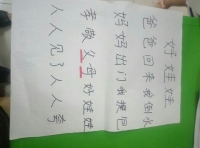 好娃娃
爸爸回来我倒水
妈妈出门我摆巴
孝敬父母好娃娃
人人见了人人夸